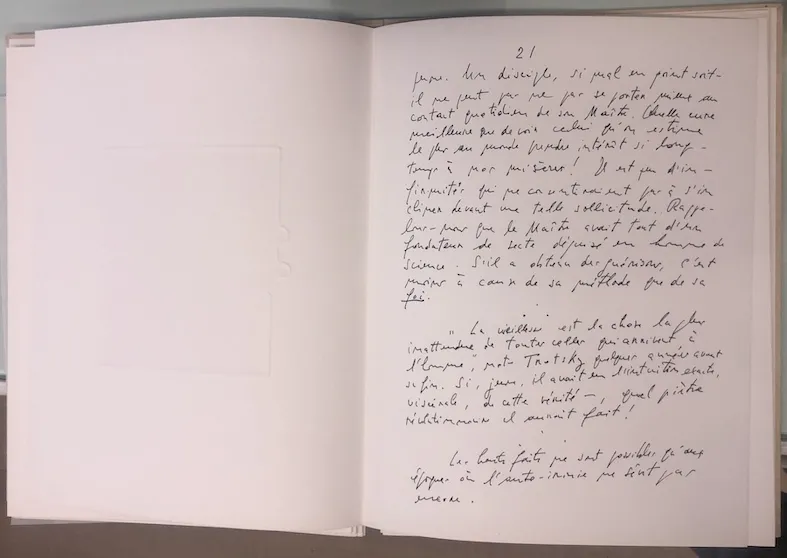 21
jeune. Un disciple, si mal en point soit-
il ne peut pas ne pas se porter mieux au
contact quotidien de son Maître. Quelle cure
meilleure que de voir celui qu'on estime
le plus au monde prendre intérêt si long-
temps à nos misères ! Il est peu d'in-
firmités qui ne consentiraient pas à s'in
cliner devant une telle sollicitude. Rappe-
lons-nous que le Maître avait tout d'un
fondateur de secte déguisé en homme de
science. S'il a obtenu des guérisons, c'est
moins à cause de sa méthode que de sa
foi.
" La vieillesse est la chose la plus
inattendue de toutes celles qui arrivent à
l'homme", note Trotsky quelques années avant
sa fin. Si, jeune, il avait eu l'intuition exacte,
viscérale, de cette vérité –, quel piètre
révolutionnaire il aurait fait !
Les hauts faits ne sont possibles qu'aux
époques où l'auto-ironie ne sévit pas
encore.